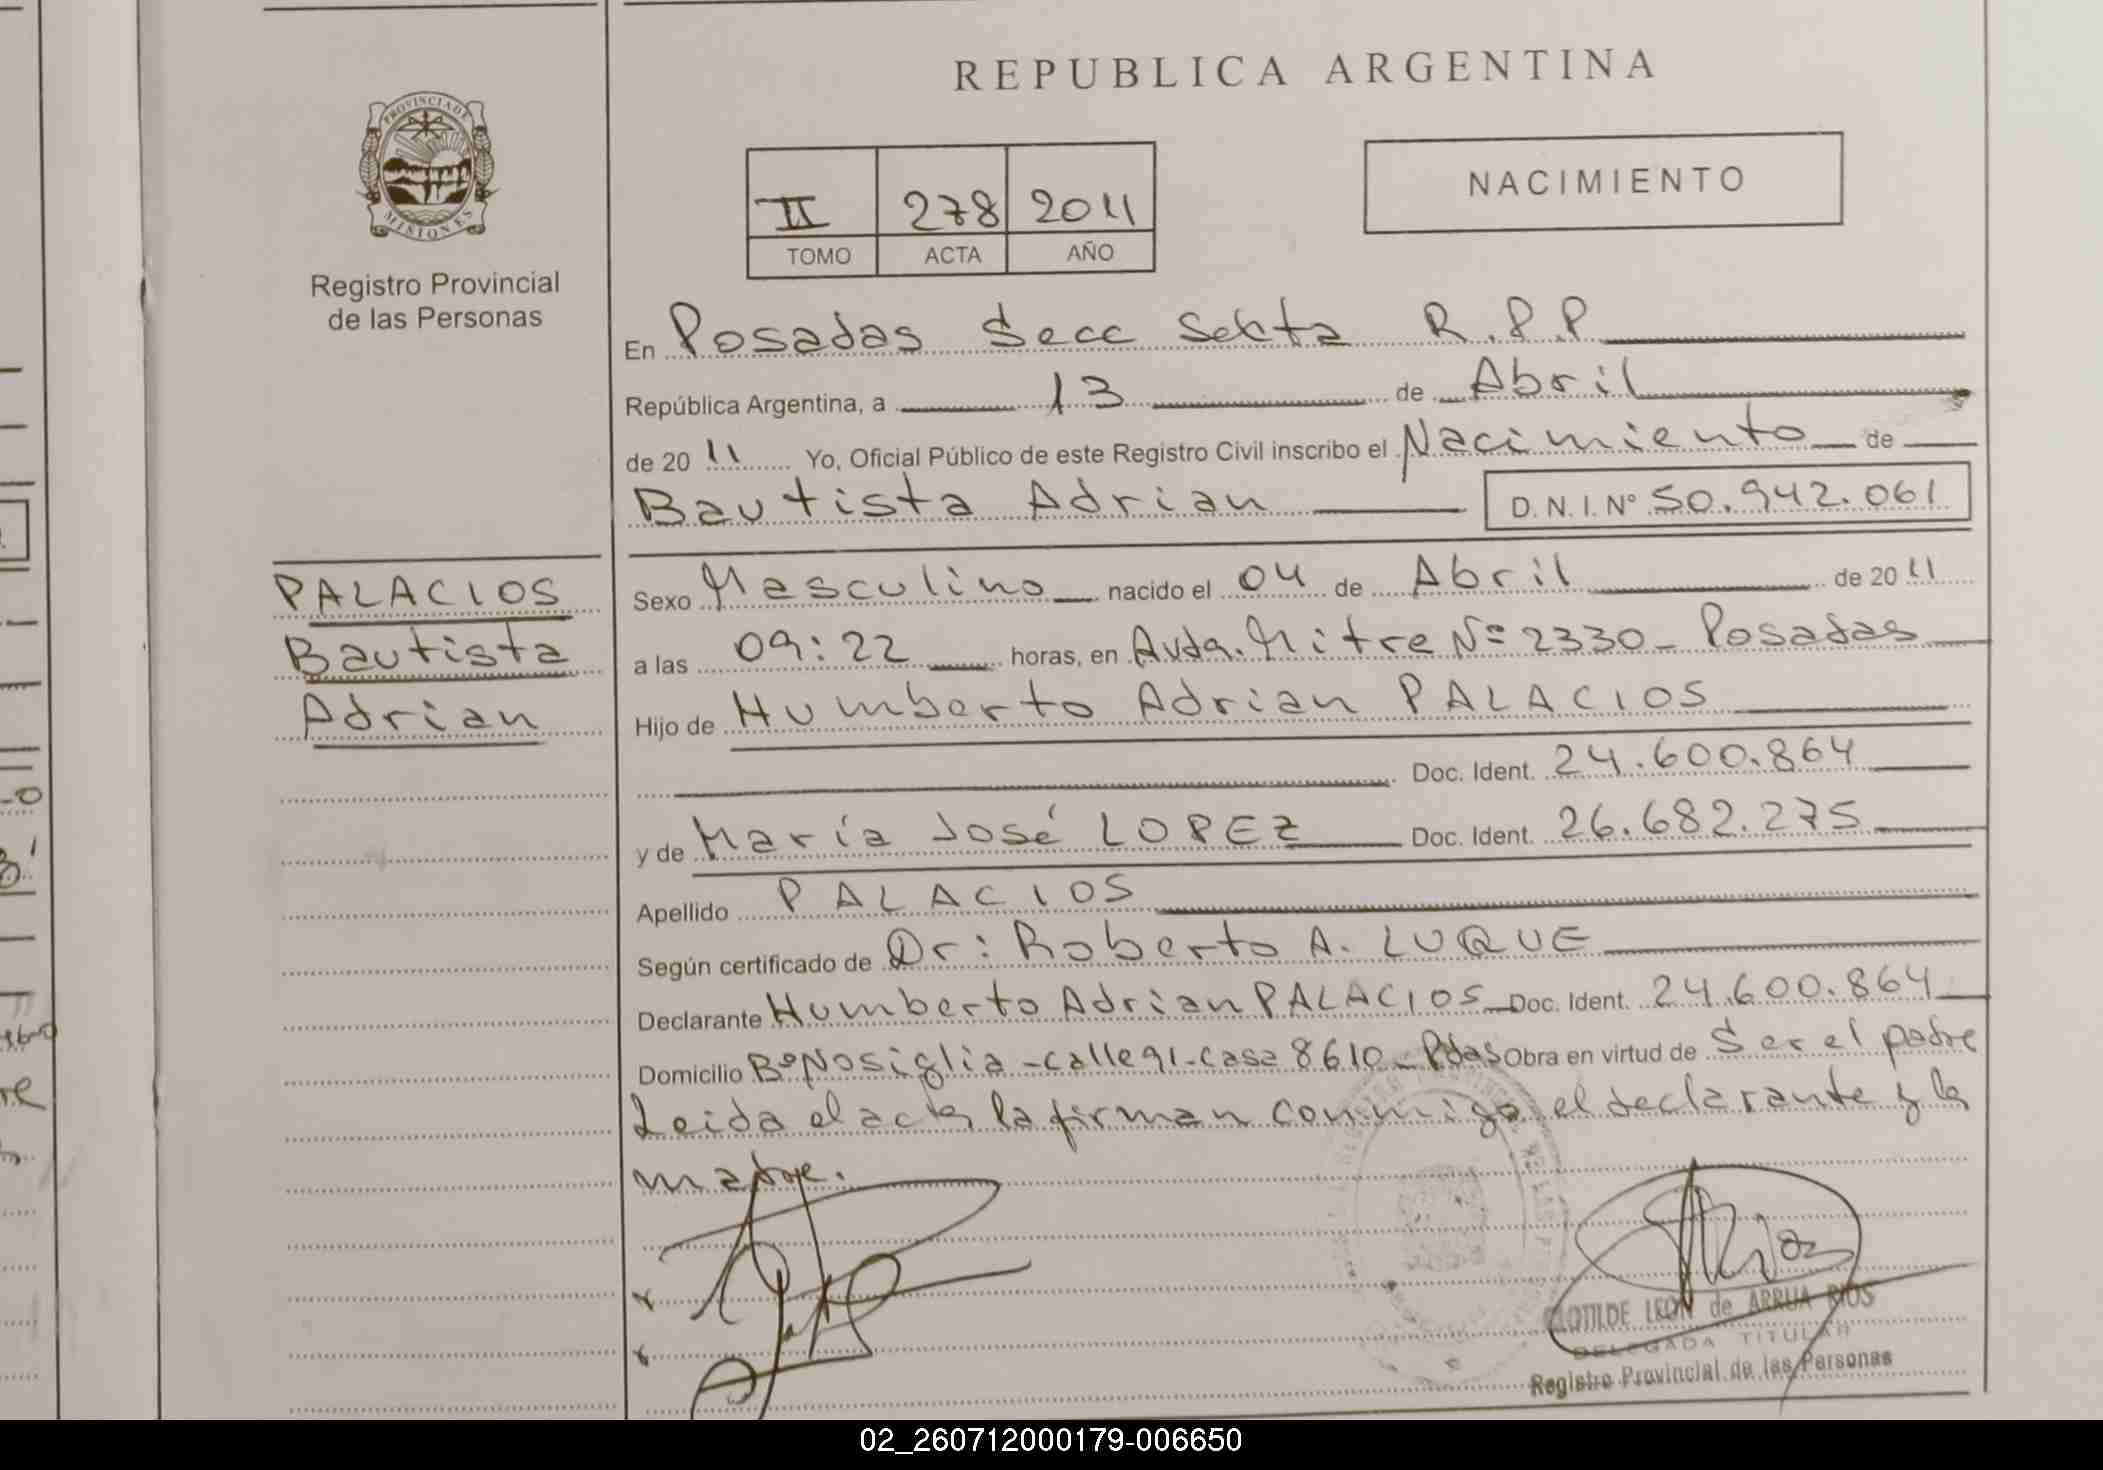 REPUBLICA ARGENTINA
PROVINCIA DE
MISIONES
Registro Provincial
de las Personas
II 278 2011
TOMO ACTA AÑO
NACIMIENTO
En Posadas Secc Sexta R.P.P
República Argentina, a 13 de Abril
de 20 11 Yo, Oficial Público de este Registro Civil inscribo el Nacimiento de
Bautista Adrian D.N.I.Nº 50.942.061
PALACIOS
Bautista
Adrian
Sexo Masculino nacido el 04 de Abril de 20 11
a las 09:22 horas, en Avda. Mitre Nº 2330 - Posadas
Hijo de Humberto Adrian PALACIOS
Doc. Ident. 24.600.864
y de María José LOPEZ Doc. Ident. 26.682.275
Apellido PALACIOS
Según certificado de Dr: Roberto A. LUQUE
Declarante Humberto Adrian PALACIOS Doc. Ident. 24.600.864
Domicilio Bº Nosiglia - calle 91 - casa 8610 - Pdas Obra en virtud de Ser el padre
Leida el acta la firman conmigo el declarante y la
madre.
CLOTILDE LEON de ARRUA RIOS
DELEGADA TITULAR
Registro Provincial de las Personas
02_260712000179-006650